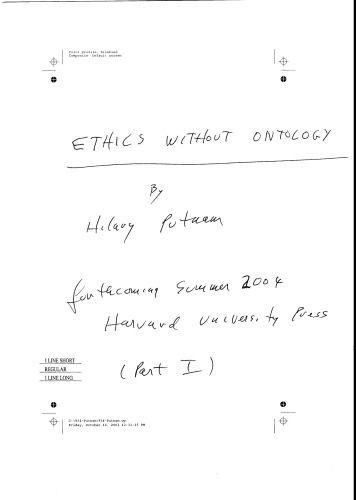 Color profile: Disabled
Composite Default screen
ETHICS WITHOUT ONTOLOGY
By
Hilary Putnam
forthcoming Summer 2004
Harvard University Press
(Part I)
1 LINE SHORT
REGULAR
1 LINE LONG
Friday, October 10, 2003 12:51:15 PM